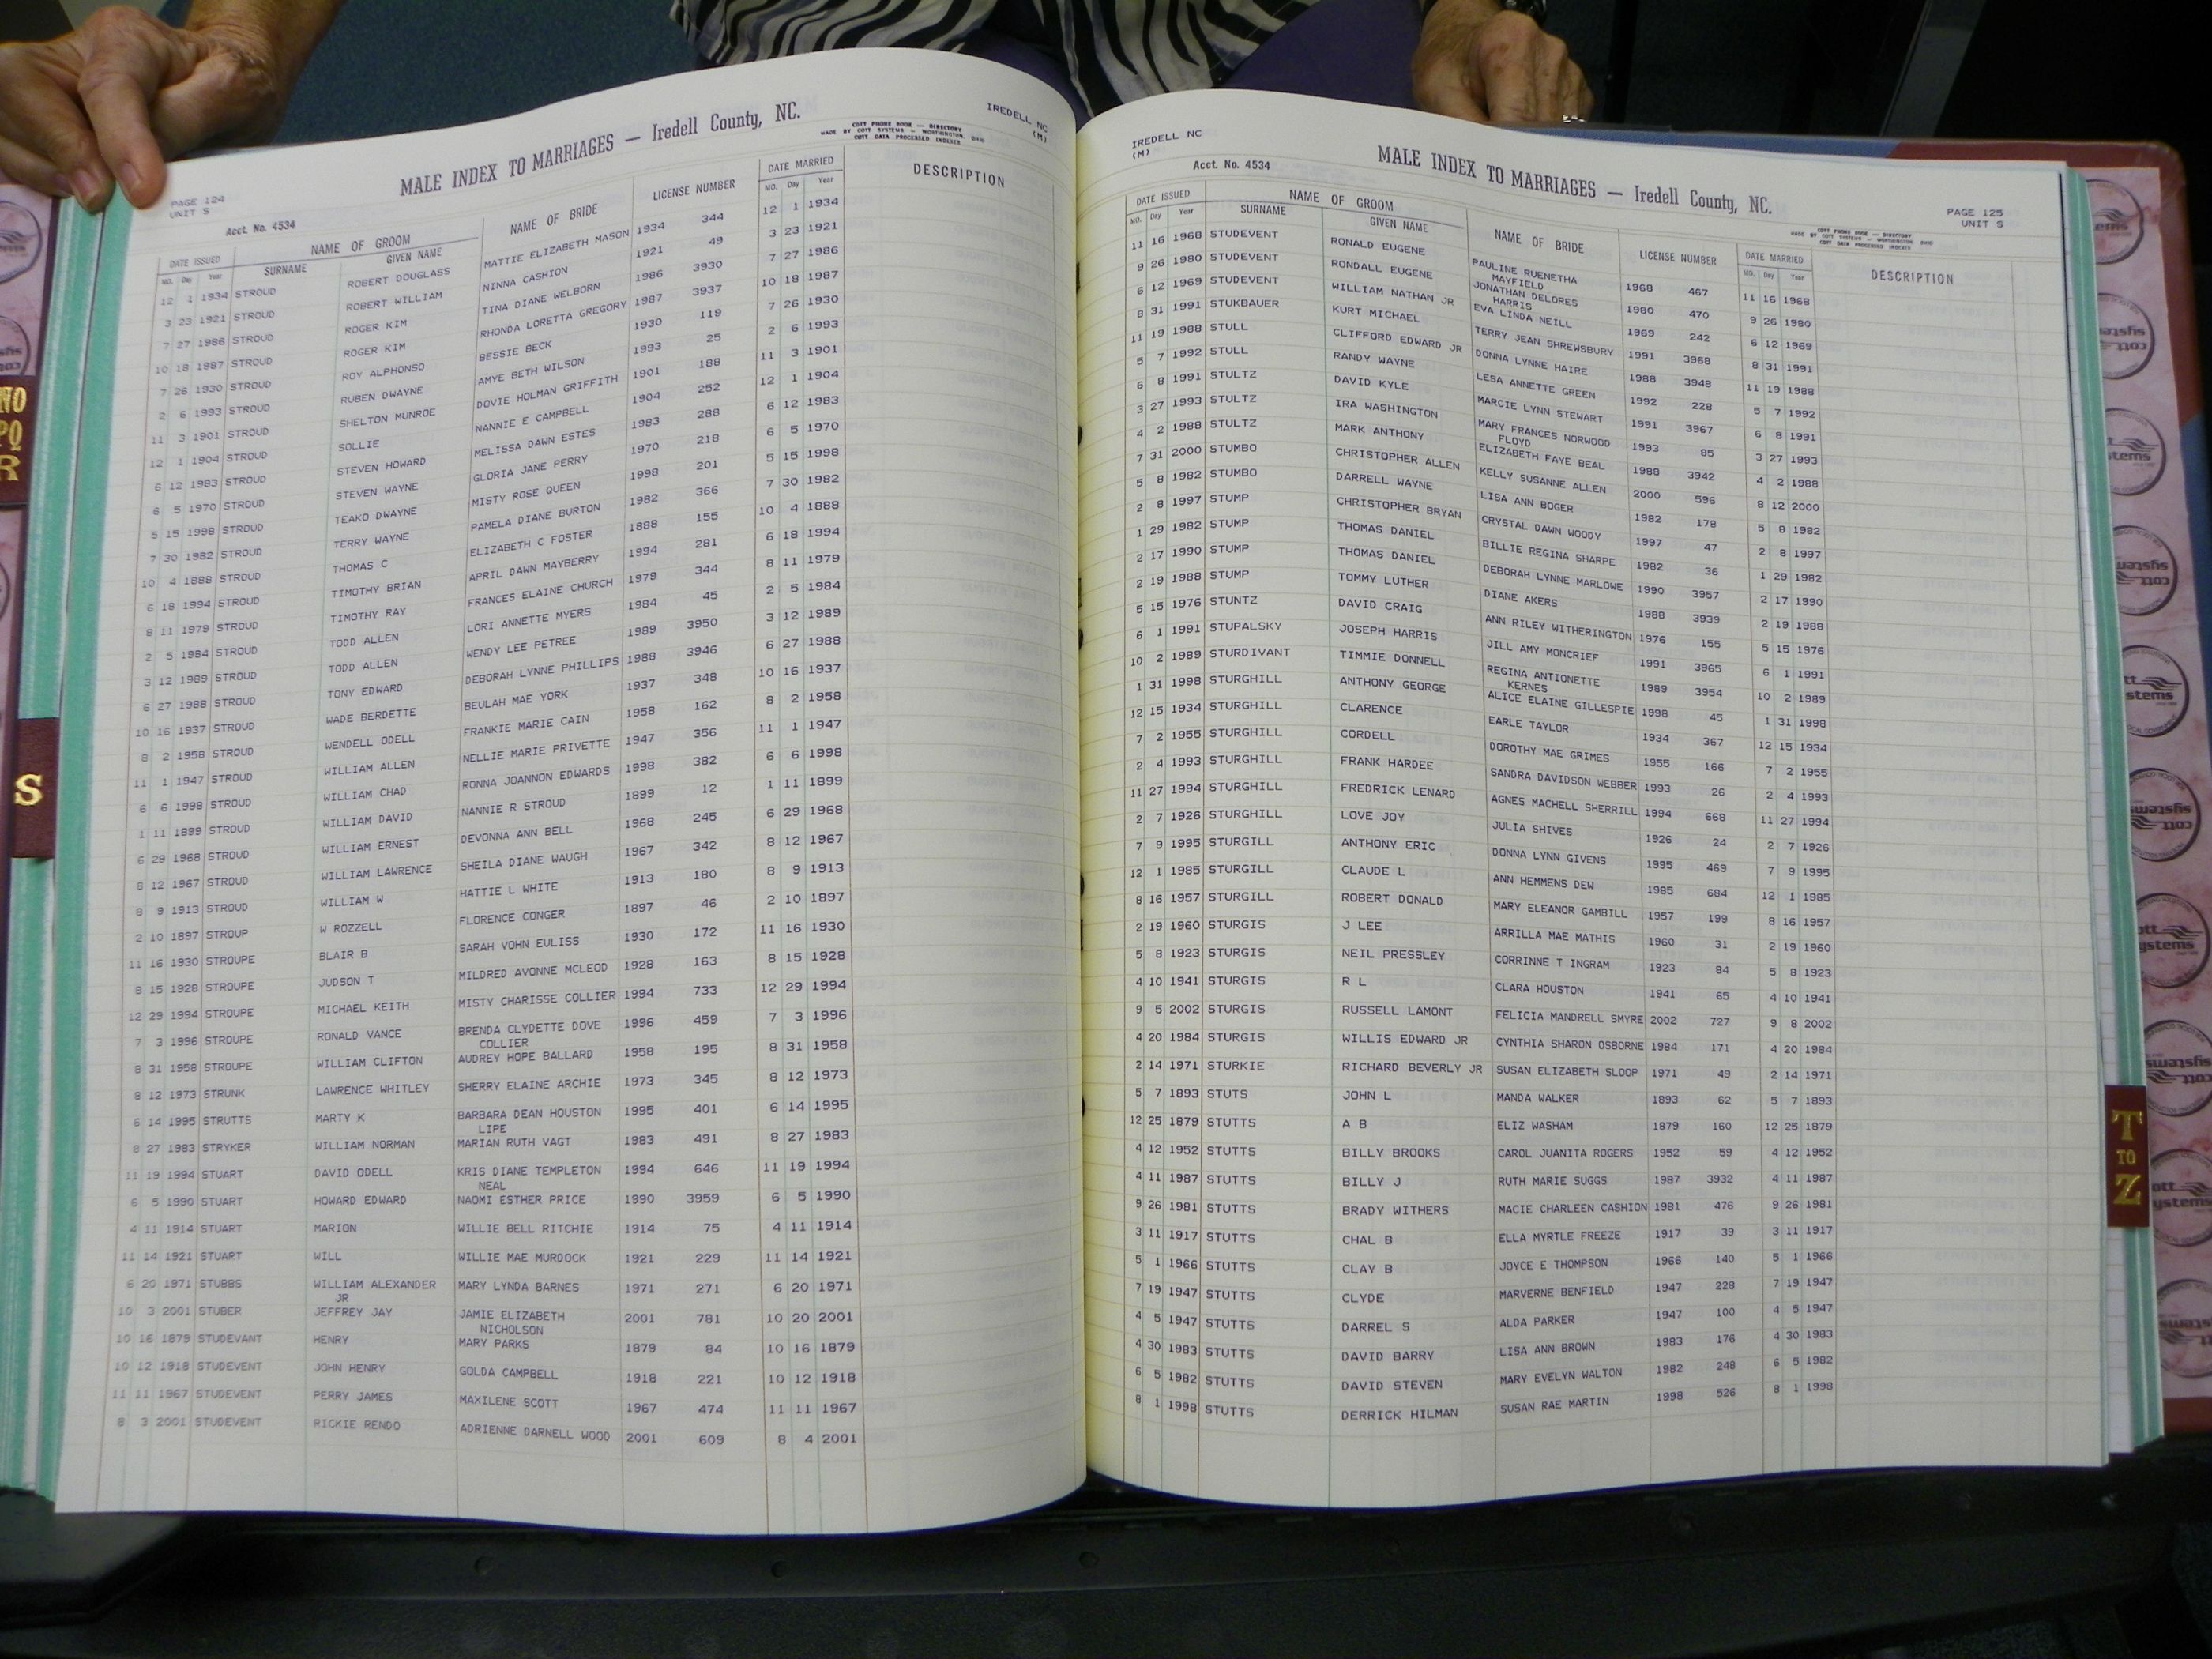 IREDELL NC
(M)
PAGE 124
UNIT S
Acct. No. 4534
MALE INDEX TO MARRIAGES — Iredell County, NC.
COTT PHONE BOOK — DIRECTORY
MADE BY COTT SYSTEMS — WORTHINGTON, OHIO
COTT DATA PROCESSED INDEXES
DATE ISSUED NAME OF GROOM NAME OF BRIDE LICENSE NUMBER DATE MARRIED DESCRIPTION
MO. Day Year SURNAME GIVEN NAME MO. Day Year
12 1 1934 STROUD ROBERT DOUGLASS MATTIE ELIZABETH MASON 1934 344 12 1 1934
3 23 1921 STROUD ROBERT WILLIAM NINNA CASHION 1921 49 3 23 1921
7 27 1986 STROUD ROGER KIM TINA DIANE WELBORN 1986 3930 7 27 1986
10 18 1987 STROUD ROGER KIM RHONDA LORETTA GREGORY 1987 3937 10 18 1987
7 26 1930 STROUD ROY ALPHONSO BESSIE BECK 1930 119 7 26 1930
2 6 1993 STROUD RUBEN DWAYNE AMYE BETH WILSON 1993 25 2 6 1993
11 3 1901 STROUD SHELTON MUNROE DOVIE HOLMAN GRIFFITH 1901 188 11 3 1901
12 1 1904 STROUD SOLLIE NANNIE E CAMPBELL 1904 252 12 1 1904
6 12 1983 STROUD STEVEN HOWARD MELISSA DAWN ESTES 1983 288 6 12 1983
6 5 1970 STROUD STEVEN WAYNE GLORIA JANE PERRY 1970 218 6 5 1970
5 15 1998 STROUD TEAKO DWAYNE MISTY ROSE QUEEN 1998 201 5 15 1998
7 30 1982 STROUD TERRY WAYNE PAMELA DIANE BURTON 1982 366 7 30 1982
10 4 1888 STROUD THOMAS C ELIZABETH C FOSTER 1888 155 10 4 1888
6 18 1994 STROUD TIMOTHY BRIAN APRIL DAWN MAYBERRY 1994 281 6 18 1994
8 11 1979 STROUD TIMOTHY RAY FRANCES ELAINE CHURCH 1979 344 8 11 1979
2 5 1984 STROUD TODD ALLEN LORI ANNETTE MYERS 1984 45 2 5 1984
3 12 1989 STROUD TODD ALLEN WENDY LEE PETREE 1989 3950 3 12 1989
6 27 1988 STROUD TONY EDWARD DEBORAH LYNNE PHILLIPS 1988 3946 6 27 1988
10 16 1937 STROUD WADE BERDETTE BEULAH MAE YORK 1937 348 10 16 1937
8 2 1958 STROUD WENDELL ODELL FRANKIE MARIE CAIN 1958 162 8 2 1958
11 1 1947 STROUD WILLIAM ALLEN NELLIE MARIE PRIVETTE 1947 356 11 1 1947
6 6 1998 STROUD WILLIAM CHAD RONNA JOANNON EDWARDS 1998 382 6 6 1998
1 11 1899 STROUD WILLIAM DAVID NANNIE R STROUD 1899 12 1 11 1899
6 29 1968 STROUD WILLIAM ERNEST DEVONNA ANN BELL 1968 245 6 29 1968
8 12 1967 STROUD WILLIAM LAWRENCE SHEILA DIANE WAUGH 1967 342 8 12 1967
8 9 1913 STROUD WILLIAM W HATTIE L WHITE 1913 180 8 9 1913
2 10 1897 STROUP W ROZZELL FLORENCE CONGER 1897 46 2 10 1897
11 16 1930 STROUPE BLAIR B SARAH VOHN EULISS 1930 172 11 16 1930
8 15 1928 STROUPE JUDSON T MILDRED AVONNE MCLEOD 1928 163 8 15 1928
12 29 1994 STROUPE MICHAEL KEITH MISTY CHARISSE COLLIER 1994 733 12 29 1994
7 3 1996 STROUPE RONALD VANCE BRENDA CLYDETTE DOVE 1996 459 7 3 1996
COLLIER
8 31 1958 STROUPE WILLIAM CLIFTON AUDREY HOPE BALLARD 1958 195 8 31 1958
8 12 1973 STRUNK LAWRENCE WHITLEY SHERRY ELAINE ARCHIE 1973 345 8 12 1973
6 14 1995 STRUTTS MARTY K BARBARA DEAN HOUSTON 1995 401 6 14 1995
LIPE
8 27 1983 STRYKER WILLIAM NORMAN MARIAN RUTH VAGT 1983 491 8 27 1983
11 19 1994 STUART DAVID ODELL KRIS DIANE TEMPLETON 1994 646 11 19 1994
NEAL
6 5 1990 STUART HOWARD EDWARD NAOMI ESTHER PRICE 1990 3959 6 5 1990
4 11 1914 STUART MARION WILLIE BELL RITCHIE 1914 75 4 11 1914
11 14 1921 STUART WILL WILLIE MAE MURDOCK 1921 229 11 14 1921
6 20 1971 STUBBS WILLIAM ALEXANDER MARY LYNDA BARNES 1971 271 6 20 1971
JR
10 3 2001 STUBER JEFFREY JAY JAMIE ELIZABETH 2001 781 10 20 2001
NICHOLSON
10 16 1879 STUDEVANT HENRY MARY PARKS 1879 84 10 16 1879
10 12 1918 STUDEVENT JOHN HENRY GOLDA CAMPBELL 1918 221 10 12 1918
11 11 1967 STUDEVENT PERRY JAMES MAXILENE SCOTT 1967 474 11 11 1967
8 3 2001 STUDEVENT RICKIE RENDO ADRIENNE DARNELL WOOD 2001 609 8 4 2001
IREDELL NC
(M)
Acct. No. 4534
MALE INDEX TO MARRIAGES — Iredell County, NC.
PAGE 125
UNIT S
COTT PHONE BOOK — DIRECTORY
MADE BY COTT SYSTEMS — WORTHINGTON, OHIO
COTT DATA PROCESSED INDEXES
DATE ISSUED NAME OF GROOM NAME OF BRIDE LICENSE NUMBER DATE MARRIED DESCRIPTION
MO. Day Year SURNAME GIVEN NAME MO. Day Year
11 16 1968 STUDEVENT RONALD EUGENE PAULINE RUENETHA 1968 467 11 16 1968
MAYFIELD
9 26 1980 STUDEVENT RONDALL EUGENE JONATHAN DELORES 1980 470 9 26 1980
HARRIS
6 12 1969 STUDEVENT WILLIAM NATHAN JR EVA LINDA NEILL 1969 242 6 12 1969
8 31 1991 STUKBAUER KURT MICHAEL TERRY JEAN SHREWSBURY 1991 3968 8 31 1991
11 19 1988 STULL CLIFFORD EDWARD JR DONNA LYNNE HAIRE 1988 3948 11 19 1988
5 7 1992 STULL RANDY WAYNE LESA ANNETTE GREEN 1992 228 5 7 1992
6 8 1991 STULTZ DAVID KYLE MARCIE LYNN STEWART 1991 3967 6 8 1991
3 27 1993 STULTZ IRA WASHINGTON MARY FRANCES NORWOOD 1993 85 3 27 1993
FLOYD
4 2 1988 STULTZ MARK ANTHONY ELIZABETH FAYE BEAL 1988 3942 4 2 1988
7 31 2000 STUMBO CHRISTOPHER ALLEN KELLY SUSANNE ALLEN 2000 596 8 12 2000
5 8 1982 STUMBO DARRELL WAYNE LISA ANN BOGER 1982 178 5 8 1982
2 8 1997 STUMP CHRISTOPHER BRYAN CRYSTAL DAWN WOODY 1997 47 2 8 1997
1 29 1982 STUMP THOMAS DANIEL BILLIE REGINA SHARPE 1982 36 1 29 1982
2 17 1990 STUMP THOMAS DANIEL DEBORAH LYNNE MARLOWE 1990 3957 2 17 1990
2 19 1988 STUMP TOMMY LUTHER DIANE AKERS 1988 3939 2 19 1988
5 15 1976 STUNTZ DAVID CRAIG ANN RILEY WITHERINGTON 1976 155 5 15 1976
6 1 1991 STUPALSKY JOSEPH HARRIS JILL AMY MONCRIEF 1991 3965 6 1 1991
10 2 1989 STURDIVANT TIMMIE DONNELL REGINA ANTIONETTE 1989 3954 10 2 1989
KERNES
1 31 1998 STURGHILL ANTHONY GEORGE ALICE ELAINE GILLESPIE 1998 45 1 31 1998
12 15 1934 STURGHILL CLARENCE EARLE TAYLOR 1934 367 12 15 1934
7 2 1955 STURGHILL CORDELL DOROTHY MAE GRIMES 1955 166 7 2 1955
2 4 1993 STURGHILL FRANK HARDEE SANDRA DAVIDSON WEBBER 1993 26 2 4 1993
11 27 1994 STURGHILL FREDRICK LENARD AGNES MACHELL SHERRILL 1994 668 11 27 1994
2 7 1926 STURGHILL LOVE JOY JULIA SHIVES 1926 24 2 7 1926
7 9 1995 STURGILL ANTHONY ERIC DONNA LYNN GIVENS 1995 469 7 9 1995
12 1 1985 STURGILL CLAUDE L ANN HEMMENS DEW 1985 684 12 1 1985
8 16 1957 STURGILL ROBERT DONALD MARY ELEANOR GAMBILL 1957 199 8 16 1957
2 19 1960 STURGIS J LEE ARRILLA MAE MATHIS 1960 31 2 19 1960
5 8 1923 STURGIS NEIL PRESSLEY CORRINNE T INGRAM 1923 84 5 8 1923
4 10 1941 STURGIS R L CLARA HOUSTON 1941 65 4 10 1941
9 5 2002 STURGIS RUSSELL LAMONT FELICIA MANDRELL SMYRE 2002 727 9 8 2002
4 20 1984 STURGIS WILLIS EDWARD JR CYNTHIA SHARON OSBORNE 1984 171 4 20 1984
2 14 1971 STURKIE RICHARD BEVERLY JR SUSAN ELIZABETH SLOOP 1971 49 2 14 1971
5 7 1893 STUTS JOHN L MANDA WALKER 1893 62 5 7 1893
12 25 1879 STUTTS A B ELIZ WASHAM 1879 160 12 25 1879
4 12 1952 STUTTS BILLY BROOKS CAROL JUANITA ROGERS 1952 59 4 12 1952
4 11 1987 STUTTS BILLY J RUTH MARIE SUGGS 1987 3932 4 11 1987
9 26 1981 STUTTS BRADY WITHERS MACIE CHARLEEN CASHION 1981 476 9 26 1981
3 11 1917 STUTTS CHAL B ELLA MYRTLE FREEZE 1917 39 3 11 1917
5 1 1966 STUTTS CLAY B JOYCE E THOMPSON 1966 140 5 1 1966
7 19 1947 STUTTS CLYDE MARVERNE BENFIELD 1947 228 7 19 1947
4 5 1947 STUTTS DARREL S ALDA PARKER 1947 100 4 5 1947
4 30 1983 STUTTS DAVID BARRY LISA ANN BROWN 1983 176 4 30 1983
6 5 1982 STUTTS DAVID STEVEN MARY EVELYN WALTON 1982 248 6 5 1982
8 1 1998 STUTTS DERRICK HILMAN SUSAN RAE MARTIN 1998 526 8 1 1998
S
T
TO
Z